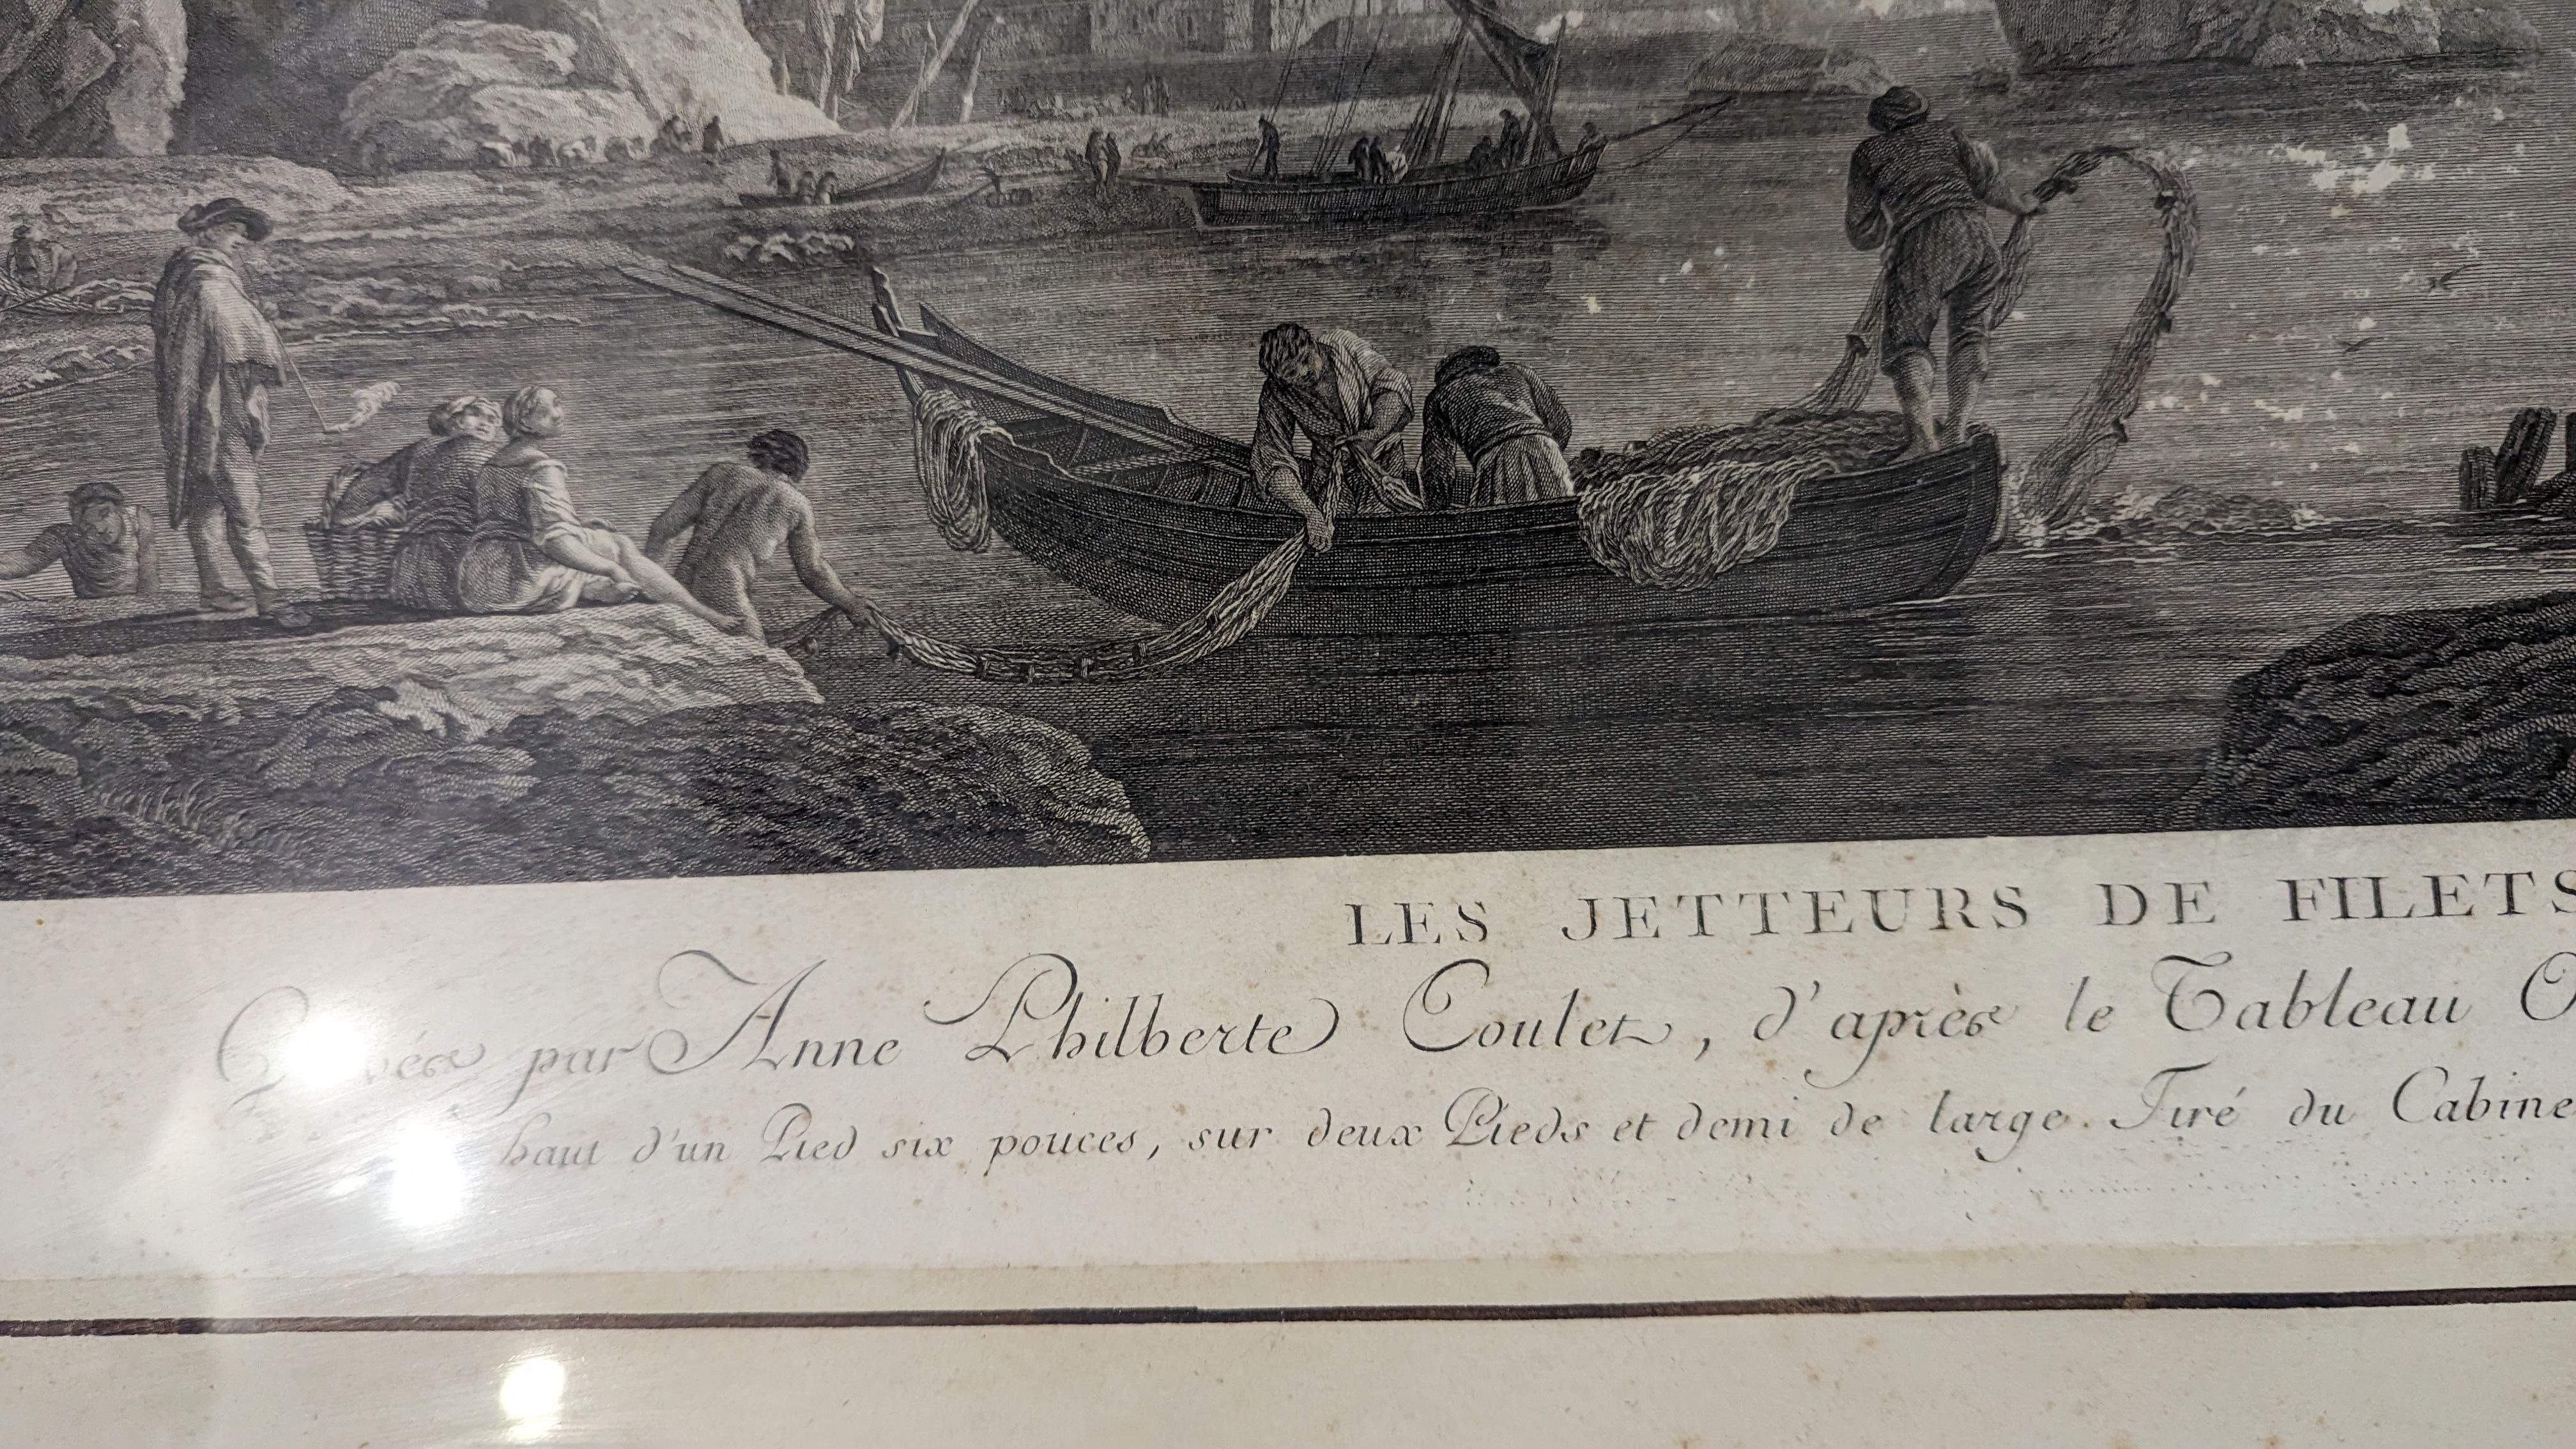 LES JETTEURS DE FILETS
par Anne Philberte Coulet, d'après le Tableau
haut d'un Pied six pouces, sur deux Pieds et demi de large. Tiré du